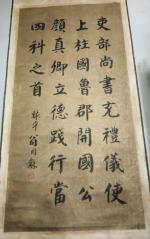 吏部尚書充禮儀使
上柱國魯郡開國公
顏真卿立德踐行當
四科之首
叔平翁同龢